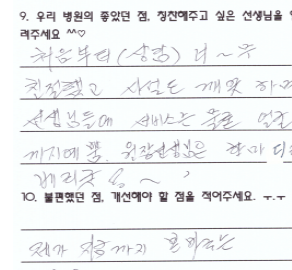 9. 우리 병원의 좋았던 점, 칭찬해주고 싶은 선생님을
려주세요 ^^♡
처음부터 (상담) 너~무
친절했고 시설도 깨끗하
선생님들에 서비스는 물론 얼굴
까지예쁨. 원장선생님은 한마디
베리굿 ~
10. 불편했던 점, 개선해야 할 점을 적어주세요. ㅜ.ㅜ
제가 지금까지